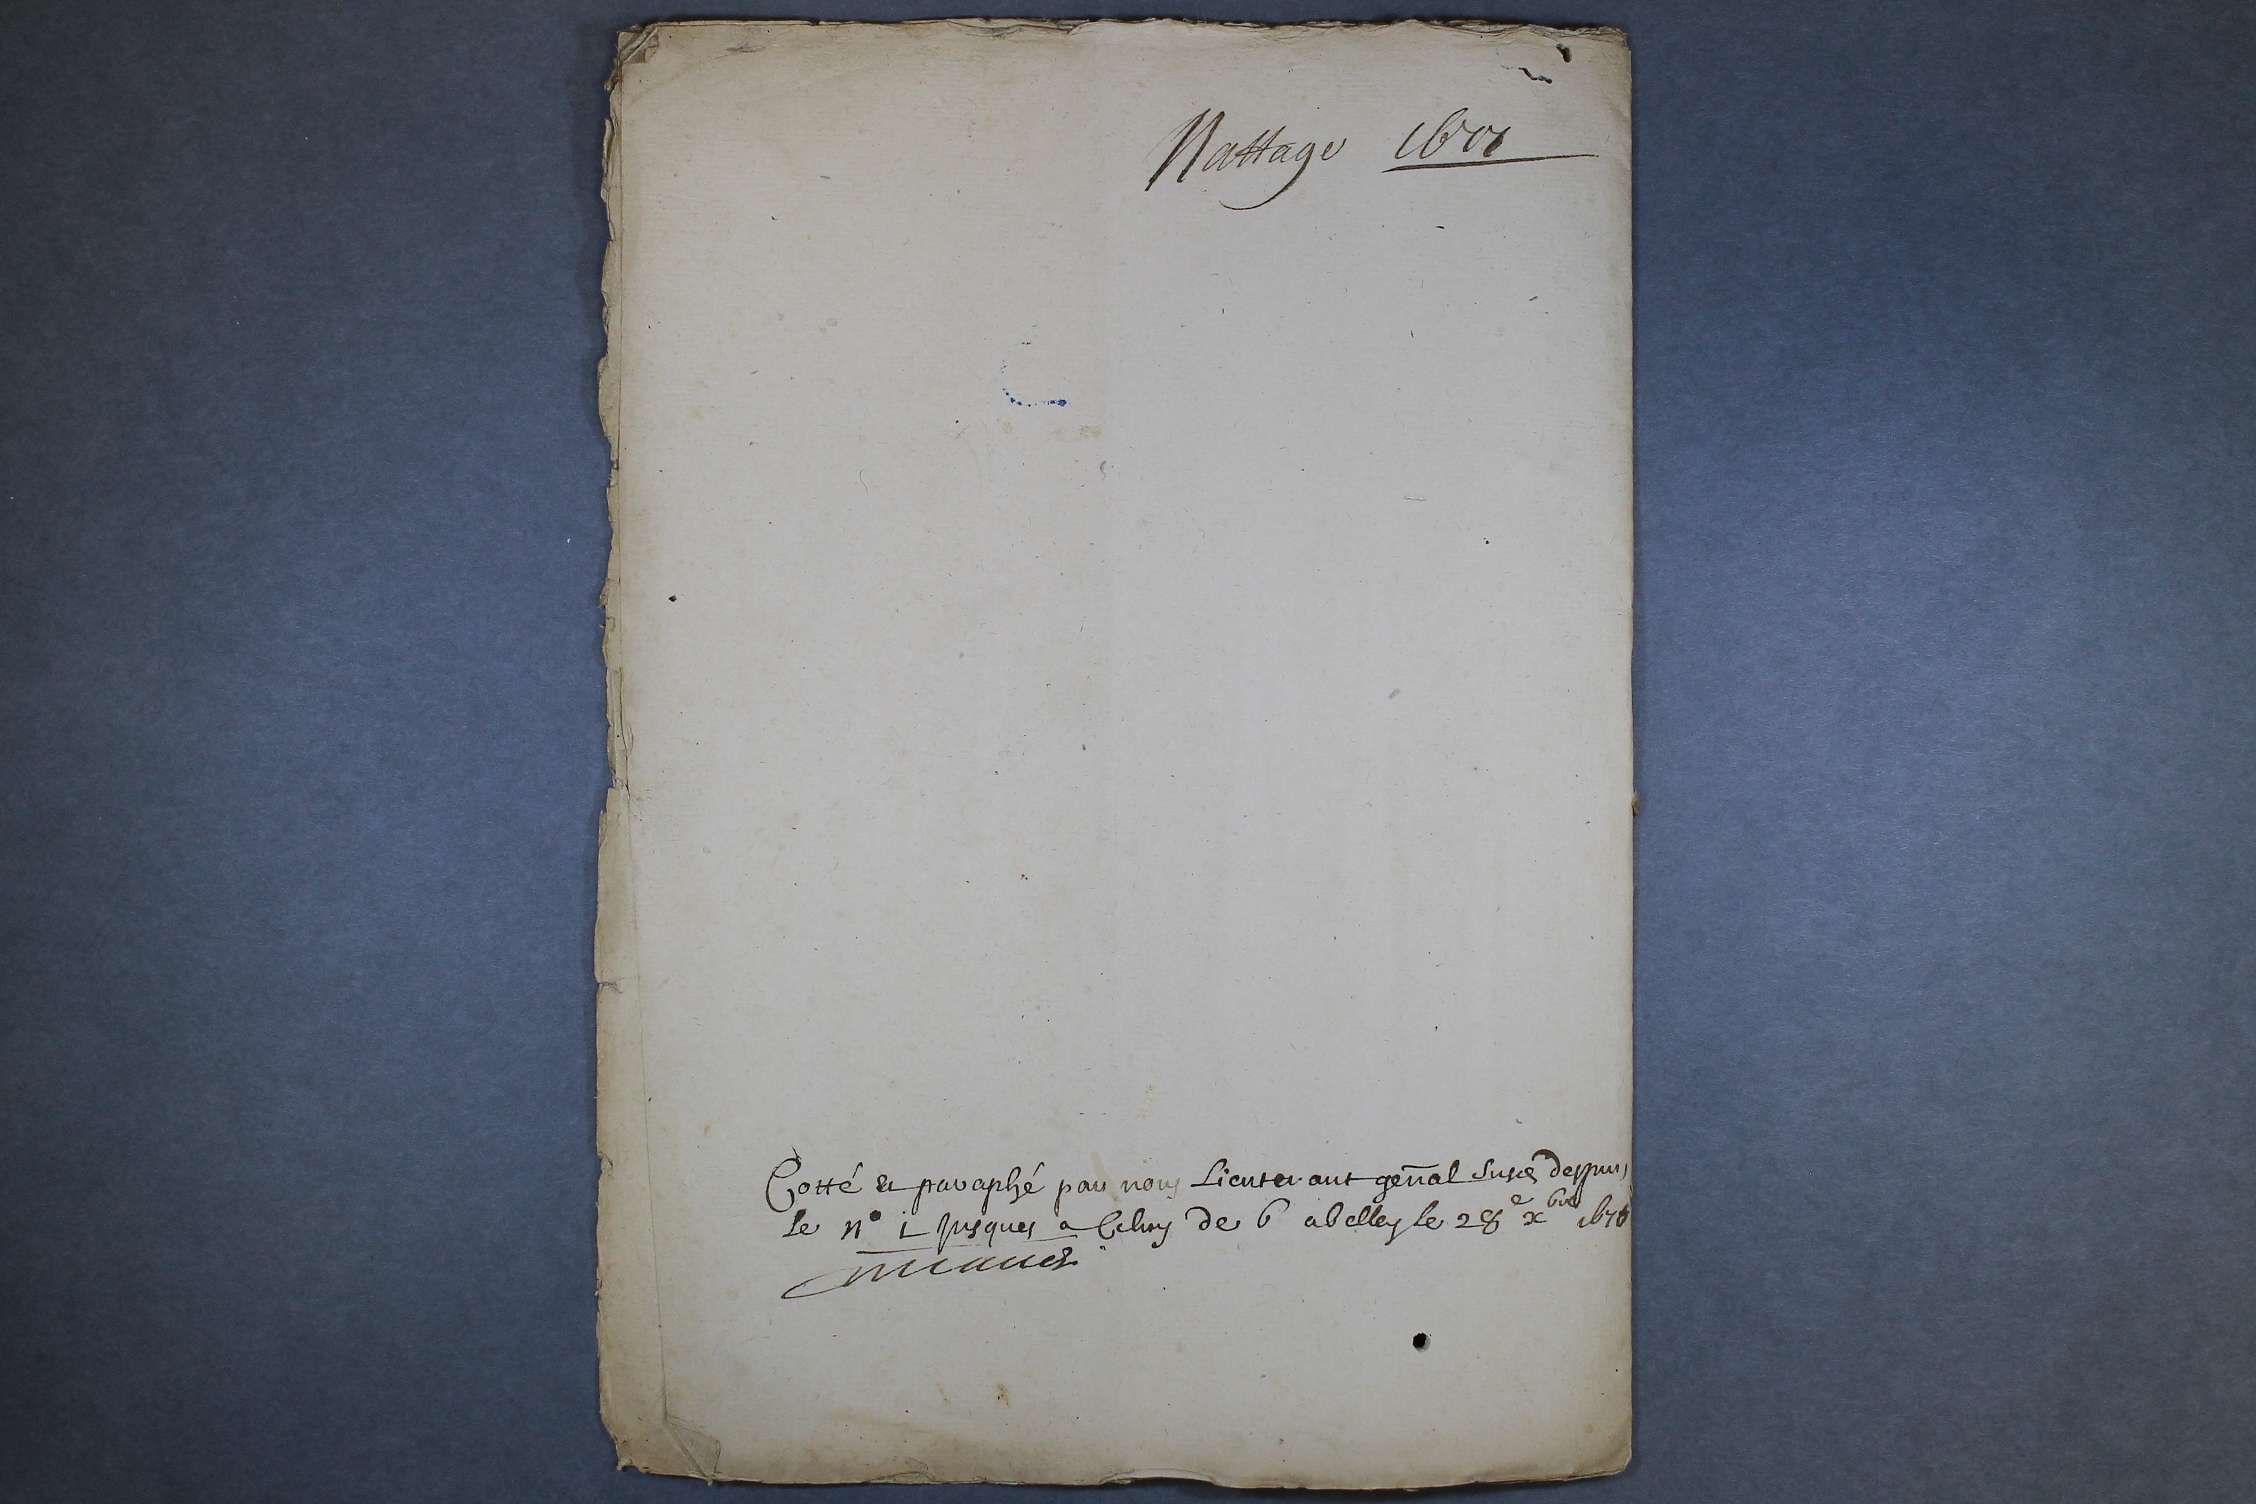 Nattage 1671
Cotté & paraphé par nous Lieutenant gen̄al susd despuis
le n° 1 jusques a celuy de 6 a belley le 28e xbre 1670